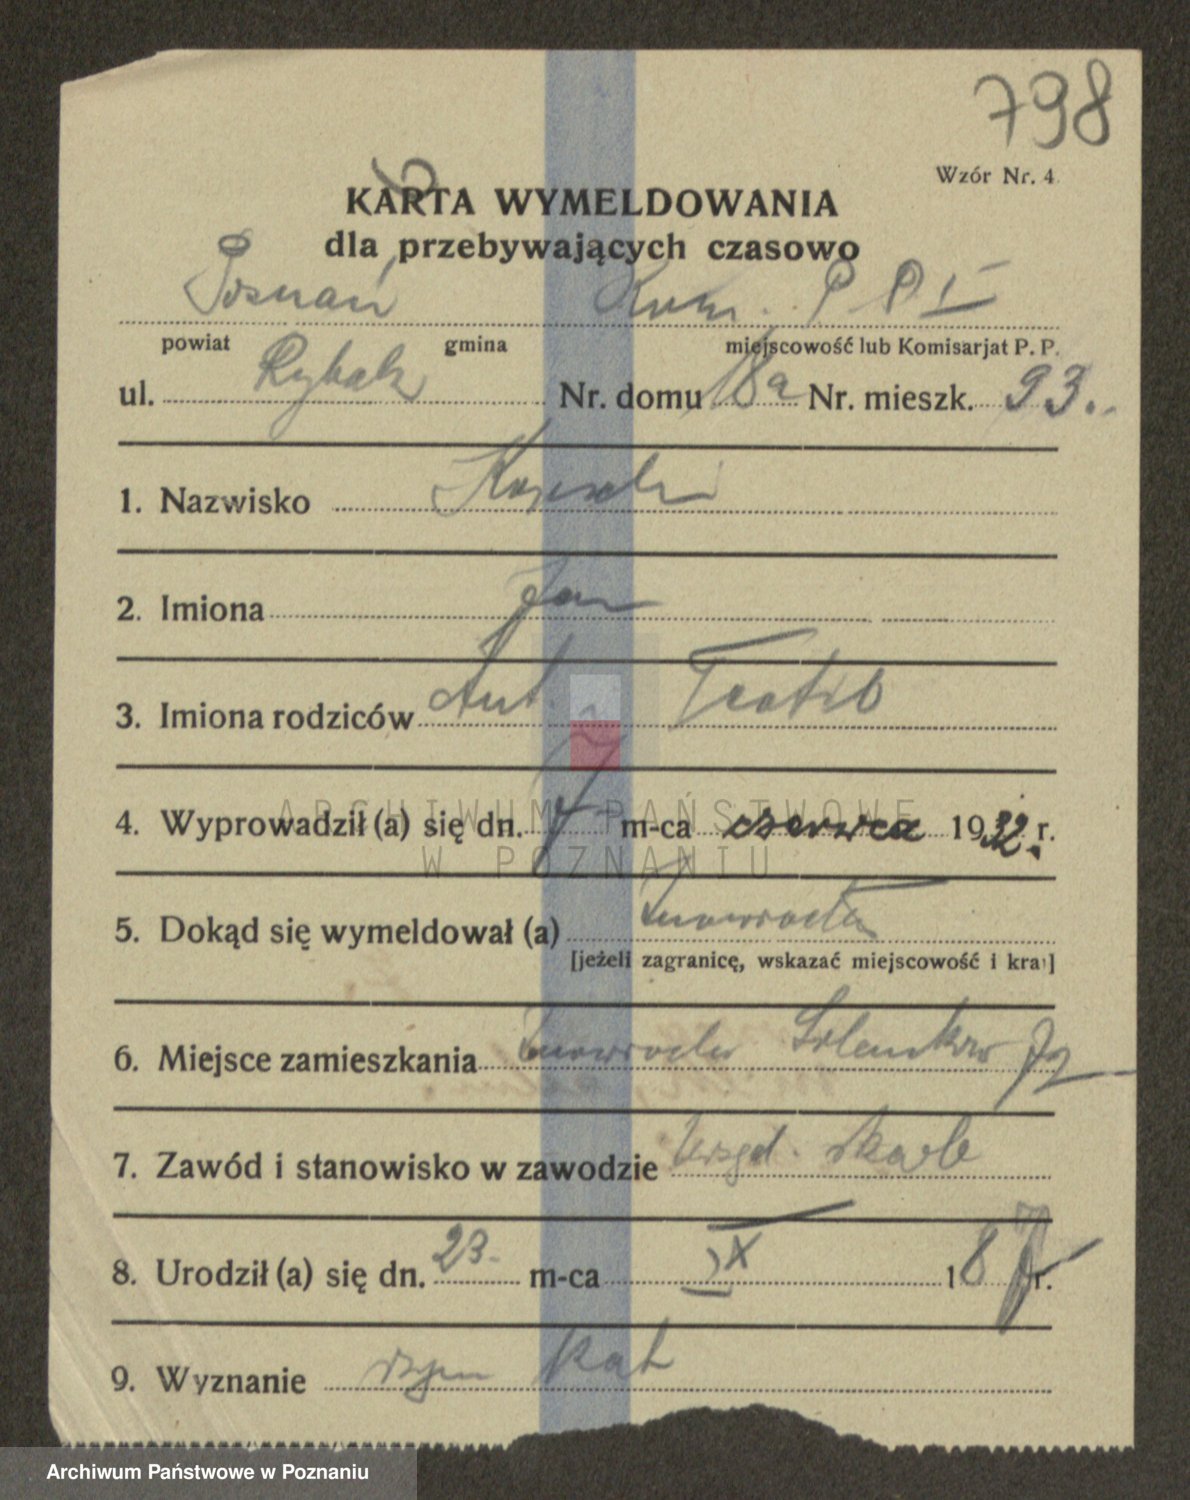 798
Wzór Nr. 4
KARTA WYMELDOWANIA
dla przebywających czasowo
Poznań Kom. P P I
powiat gmina miejscowość lub Komisarjat P. P.
ul. Rybak Nr. domu 18a Nr. mieszk. 93.
1. Nazwisko
2. Imiona Jan
3. Imiona rodziców Ant.
ARCHIWUM PAŃSTWOWE
4. Wyprowadził (a) się dn. 7 m-ca czerwca 1932. r.
W POZNANIU
5. Dokąd się wymeldował (a)
[jeżeli zagranicę, wskazać miejscowość i kraj]
6. Miejsce zamieszkania
7. Zawód i stanowisko w zawodzie Urzęd. skarb
8. Urodził (a) się dn. 23. m-ca IX 187 r.
9. Wyznanie rzym kat
Archiwum Państwowe w Poznaniu